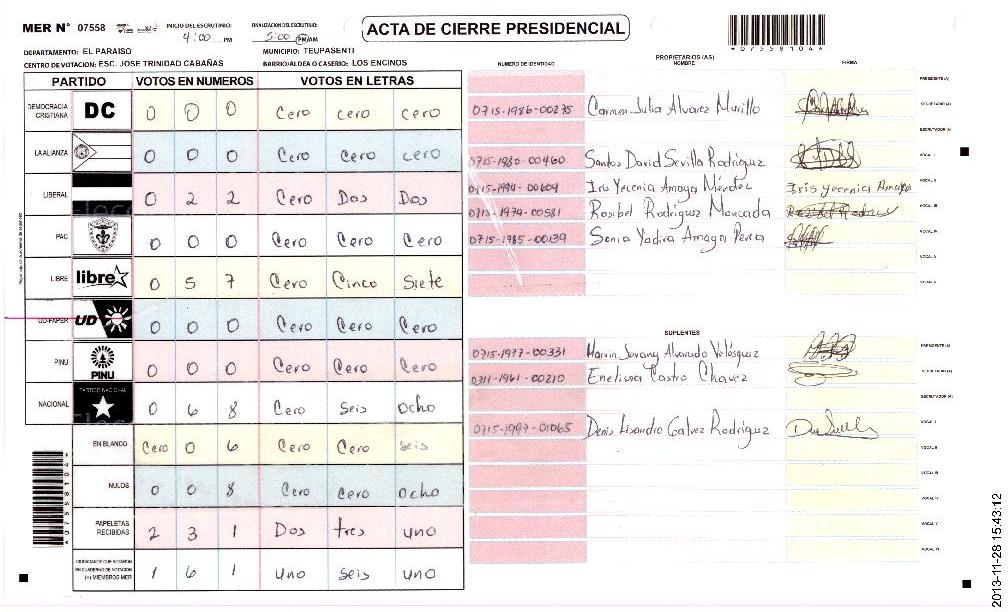 MER N° 07558
INICIO DEL ESCRUTINIO: 4:00 PM
FINALIZACION DEL ESCRUTINIO: 5:00 PM/AM
ACTA DE CIERRE PRESIDENCIAL
*07558104*
DEPARTAMENTO: EL PARAISO
MUNICIPIO: TEUPASENTI
CENTRO DE VOTACION: ESC. JOSE TRINIDAD CABAÑAS
BARRIO/ALDEA O CASERIO: LOS ENCINOS
PARTIDO VOTOS EN NUMEROS VOTOS EN LETRAS
DEMOCRACIA CRISTIANA DC 0 0 0 Cero cero cero
LA ALIANZA 0 0 0 Cero Cero cero
LIBERAL 0 2 2 Cero Dos Dos
PAC 0 0 0 Cero Cero Cero
LIBRE libre 0 5 7 Cero Cinco Siete
UD-FAPER UD 0 0 0 Cero Cero Cero
PINU PINU 0 0 0 Cero Cero Cero
NACIONAL PARTIDO NACIONAL 0 6 8 Cero Seis Ocho
EN BLANCO Cero 0 6 Cero Cero seis
NULOS 0 0 8 Cero Cero Ocho
PAPELETAS RECIBIDAS 2 3 1 Dos tres uno
CIUDADANOS QUE VOTARON EN CUADERNO DE VOTACION (+) MIEMBROS MER 1 6 1 uno seis uno
*07558104*
PROPIETARIOS (AS)
NUMERO DE IDENTIDAD NOMBRE FIRMA
PRESIDENTE (A)
0715-1986-00275 Carmen Julia Alvarez Murillo SECRETARIO (A)
ESCRUTADOR (A)
0715-1980-00460 Santos David Sevilla Rodriguez VOCAL I
0715-1994-00604 Iris Yecenia Amaya Méndez Iris yecenia Amaya VOCAL II
0715-1974-00581 Rosibel Rodriguez Moncada VOCAL III
0715-1985-00139 Sonia Yadira Amaya VOCAL IV
VOCAL V
VOCAL VI
SUPLENTES
0715-1977-00331 Marvin Jovany Alvarado Velásquez PRESIDENTE (A)
0311-1961-00210 Castro Chavez SECRETARIO (A)
ESCRUTADOR (A)
0715-1997-01065 Denis Lisandro Galvez Rodriguez VOCAL I
VOCAL II
VOCAL III
VOCAL IV
VOCAL V
VOCAL VI
2013-11-28 15:43:12